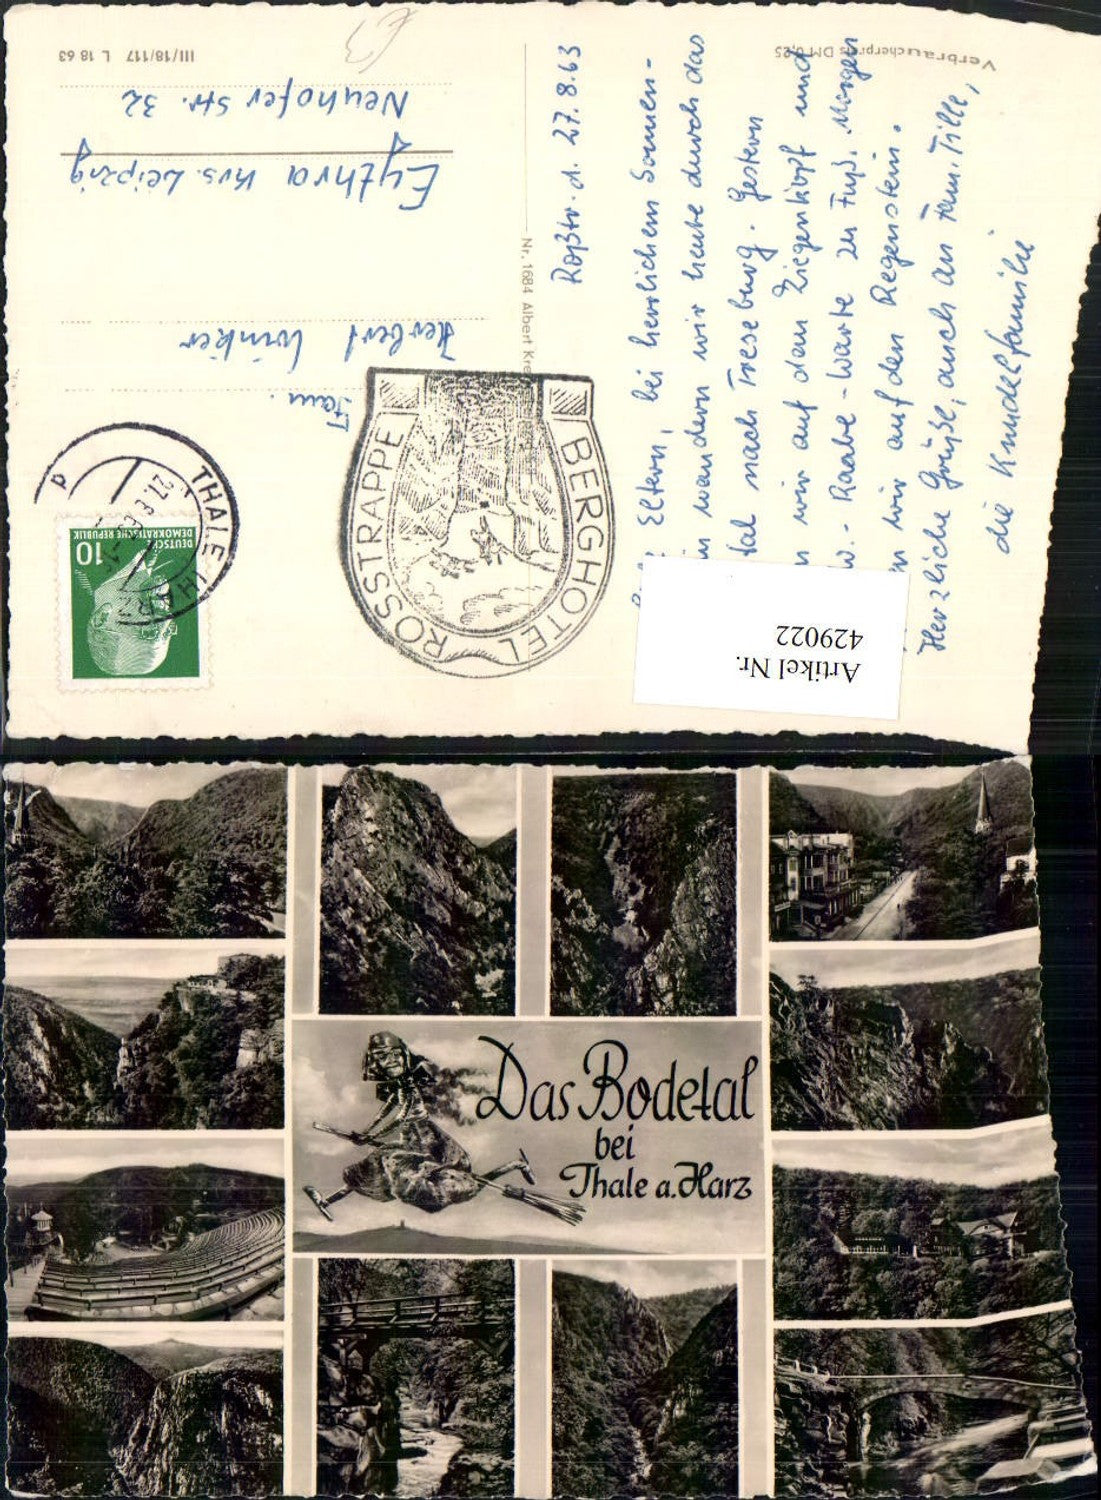 III/18/117 L 18 63
Verbraucherpreis DM 0,25
Nr. 1684 Albert Kre
Fam.
Herbert Winkler
Eythra Krs. Leipzig
Neuhofer Str. 32
DEUTSCHE
DEMOKRATISCHE REPUBLIK
10
THALE (HARZ)
27.8.63
ROSSTRAPPE
BERGHOTEL
Roßtr. d. 27.8.63
Eltern, bei herrlichem Sonnen-
wandern wir heute durch das
tal nach Treseburg. Gestern
wir auf dem Ziegenkopf und
Raabe-Warte zu Fuß. Morgen
wir auf den Regenstein.
Herzliche Grüße, auch an Fam. Tille,
die Knudelfamilie
Artikel Nr.
429022
Das Bodetal
bei
Thale a. Harz